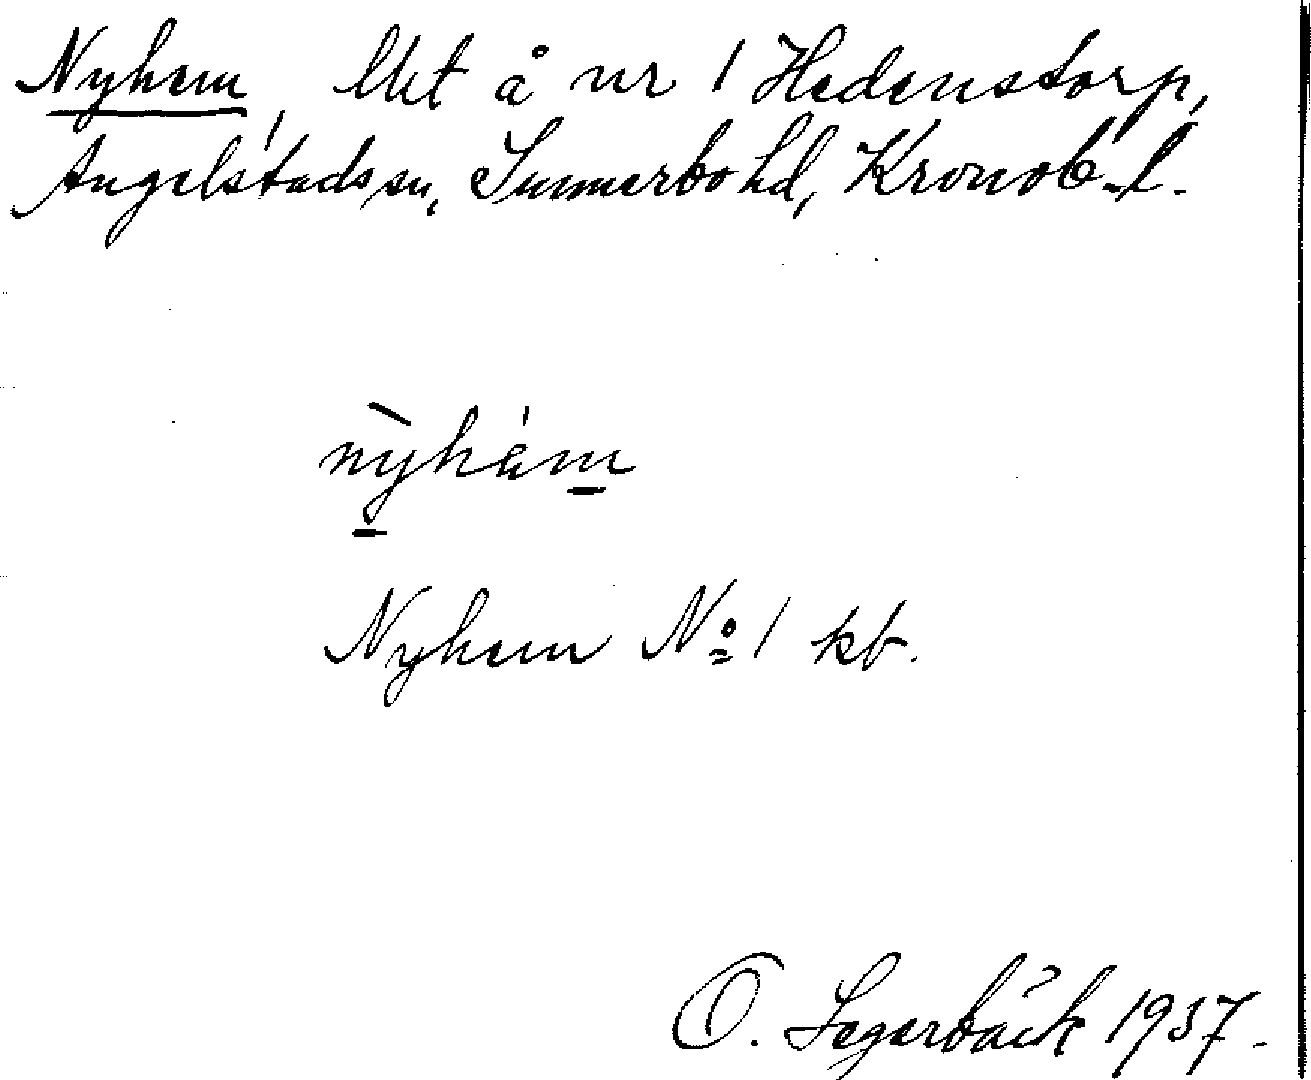 Nyhem, lht å nr 1 Hedenstorp,
Angelstads sn, Sunnerbo hd, Kronob. l.
nỳhém
Nyhem No 1 kb.
O. Segerbäck 1937.